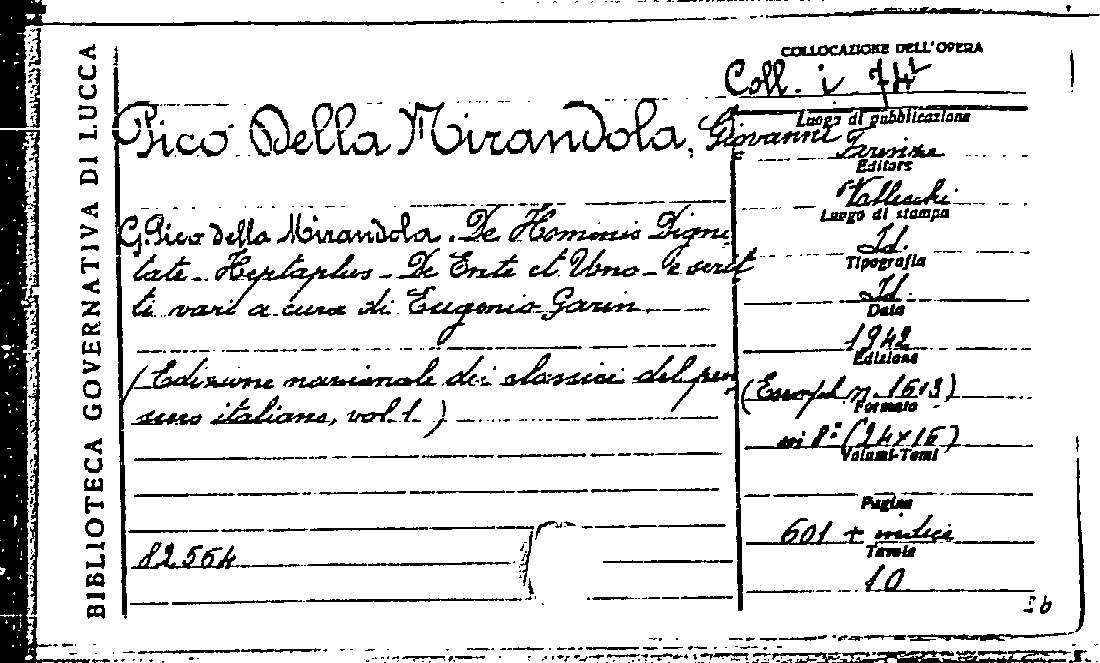 BIBLIOTECA GOVERNATIVA DI LUCCA
COLLOCAZIONE DELL'OPERA
Coll. i 74
Pico Della Mirandola, Giovanni
Luogo di pubblicazione
Firenze
Editore
Vallecchi
Luogo di stampa
Id.
Tipografia
Id.
Data
1942
Edizione
(Esempl n. 1613)
Formato
in 8° (24x16)
Volumi-Tomi
Pagine
601 + indici
Tavole
10
G. Pico della Mirandola. De Hominis Digni
tate - Heptaplus - De Ente et Uno - e scrit
ti vari a cura di Eugenio Garin.
(Edizione nazionale dei classici del pen
siero italiano, vol. 1.)
82564